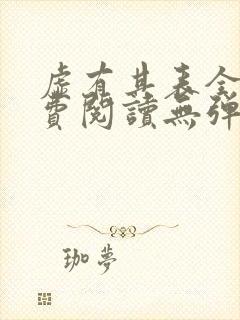 虛有其表全
費閱讀無彈
珈夢